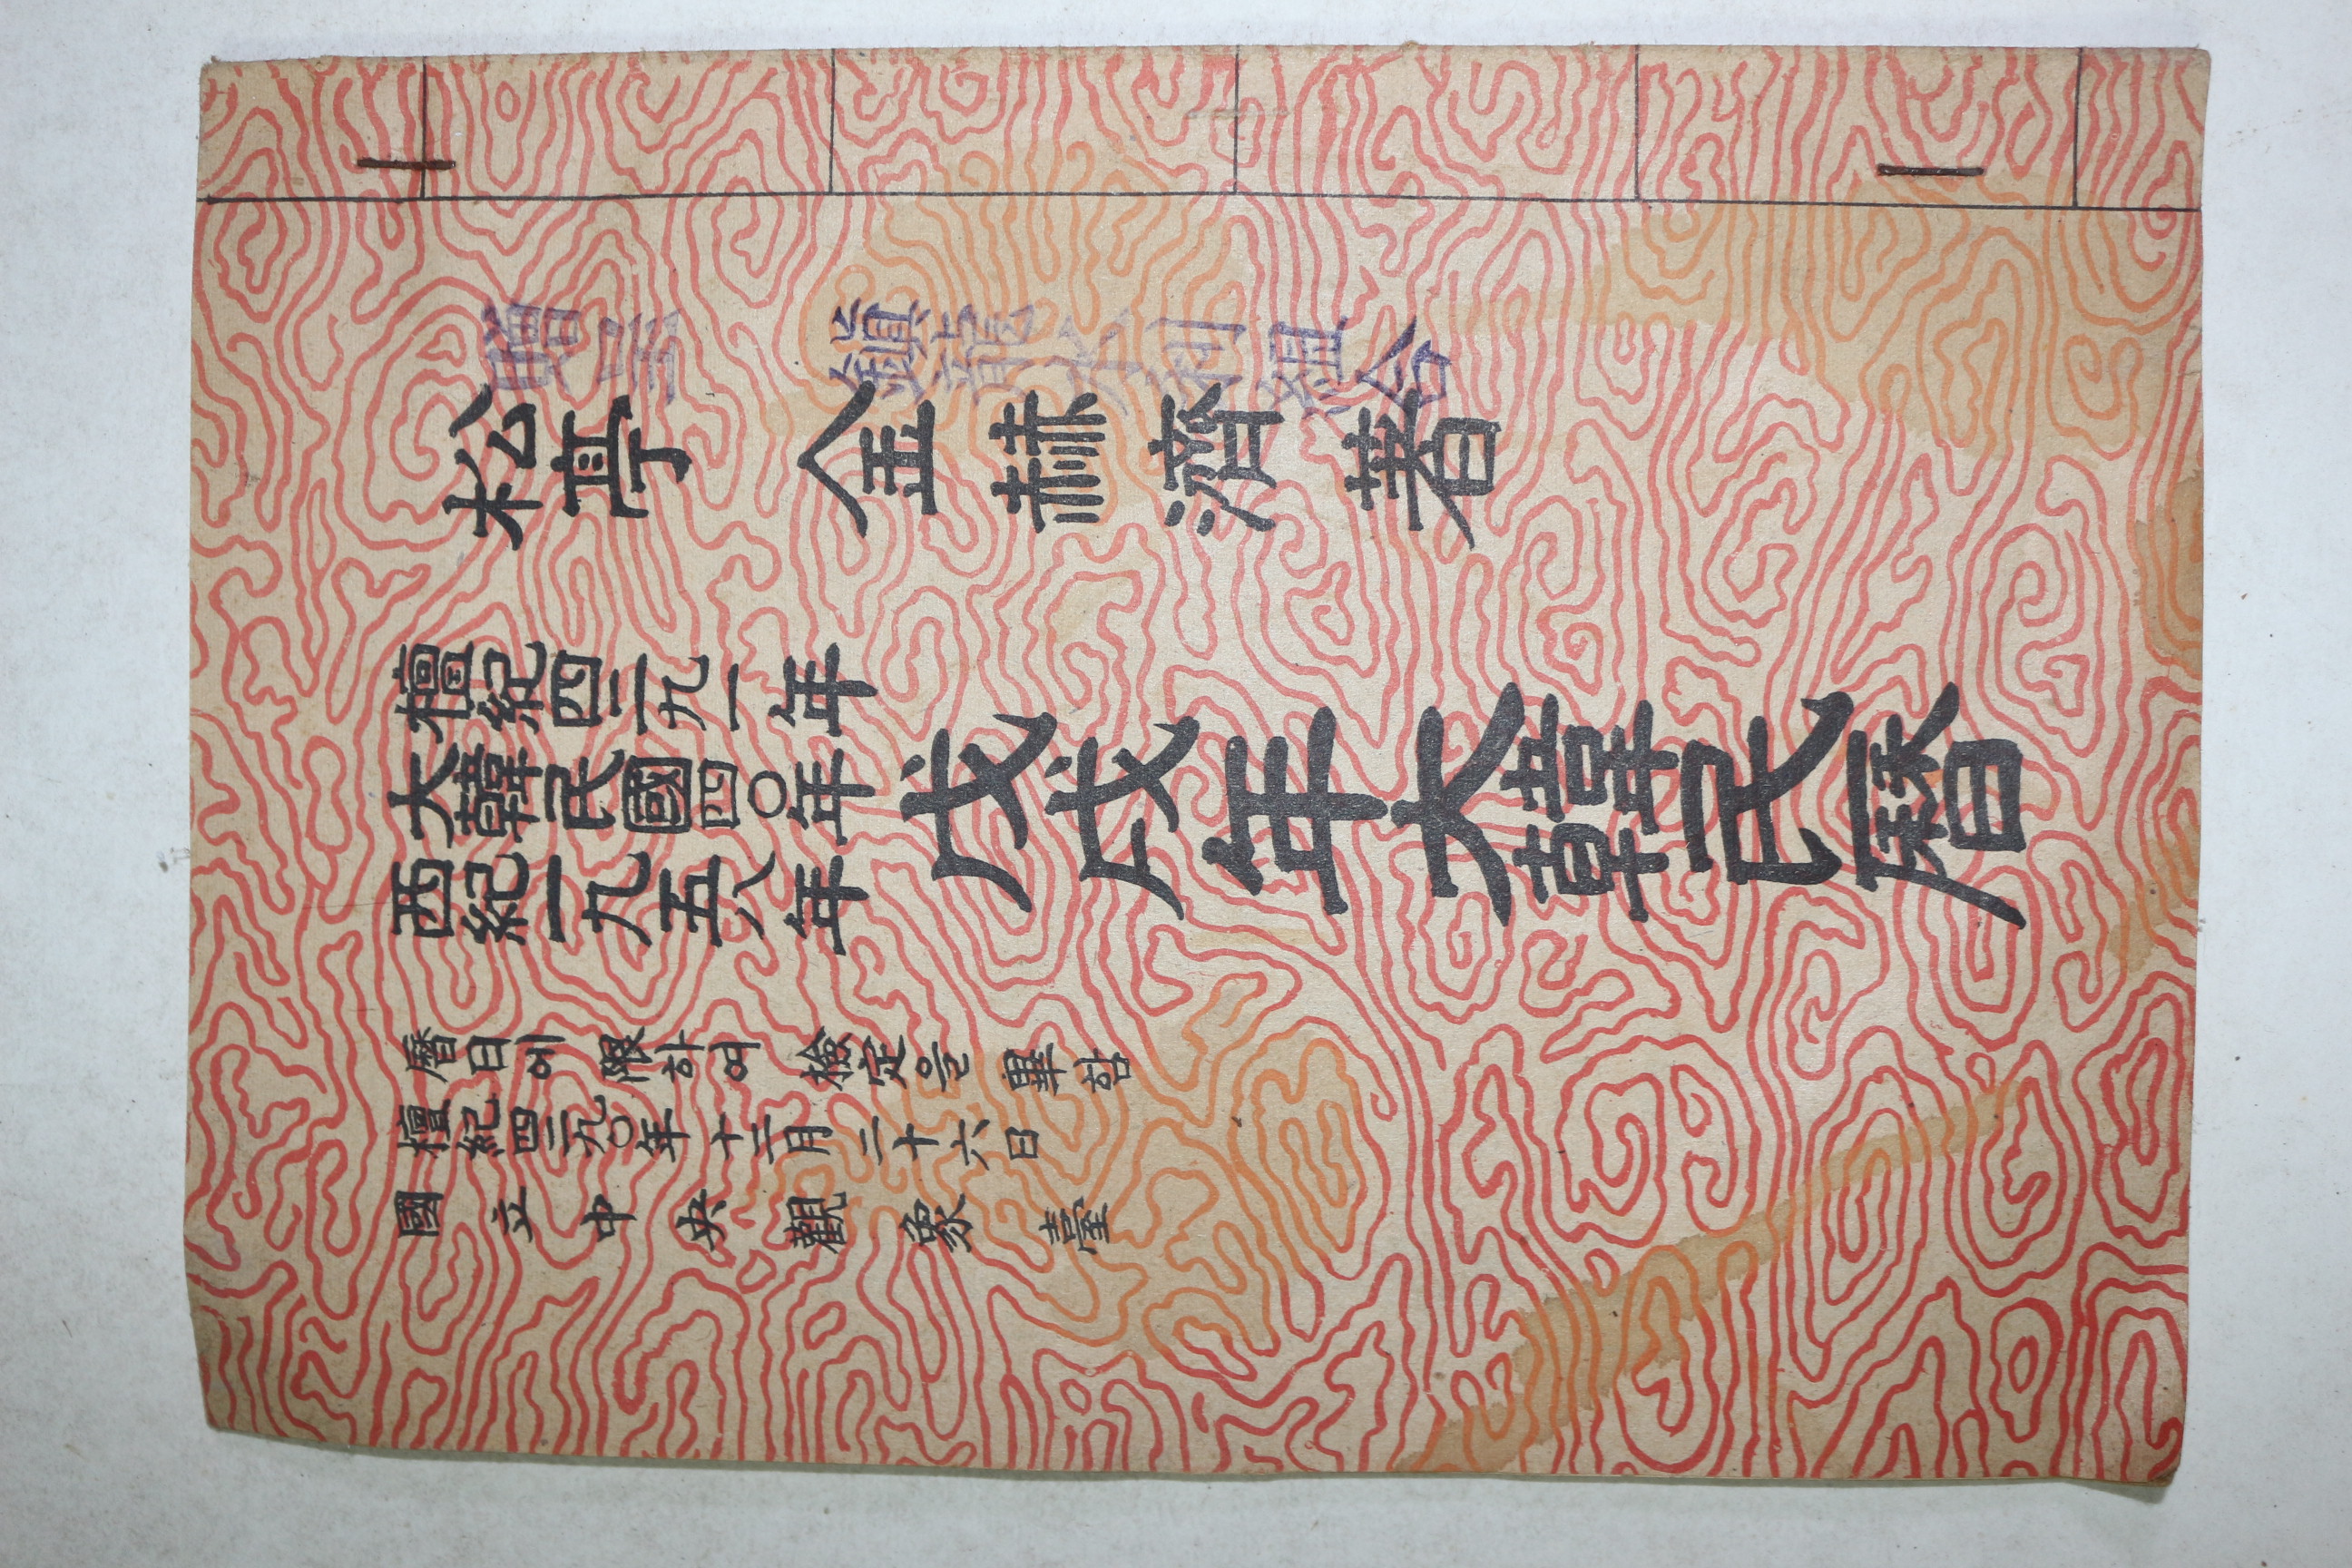 贈呈 水利組合
松亭 金赫濟 著
檀紀四二九一年
大韓民國四〇年
西紀一九五八年
戊戌年大韓民曆
曆日에 限하여 檢定을 畢함
檀紀四二九〇年 十二月 二十六日
國立中央觀象臺